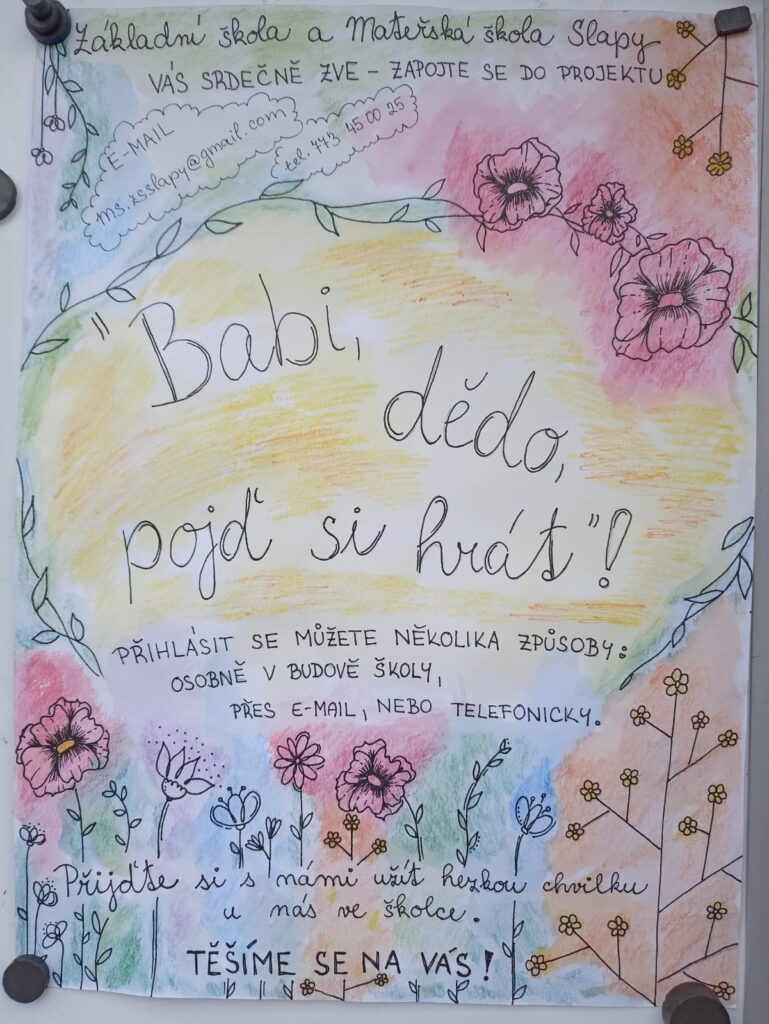 Základní škola a Mateřská škola Slapy
VÁS SRDEČNĚ ZVE - ZAPOJTE SE DO PROJEKTU
E-MAIL
ms.zsslapy@gmail.com
tel. 773 45 00 25
"Babi,
dědo,
pojď si hrát"!
PŘIHLÁSIT SE MŮŽETE NĚKOLIKA ZPŮSOBY:
OSOBNĚ V BUDOVĚ ŠKOLY,
PŘES E-MAIL, NEBO TELEFONICKY.
Přijďte si s námi užít hezkou chvilku
u nás ve školce.
TĚŠÍME SE NA VÁS!